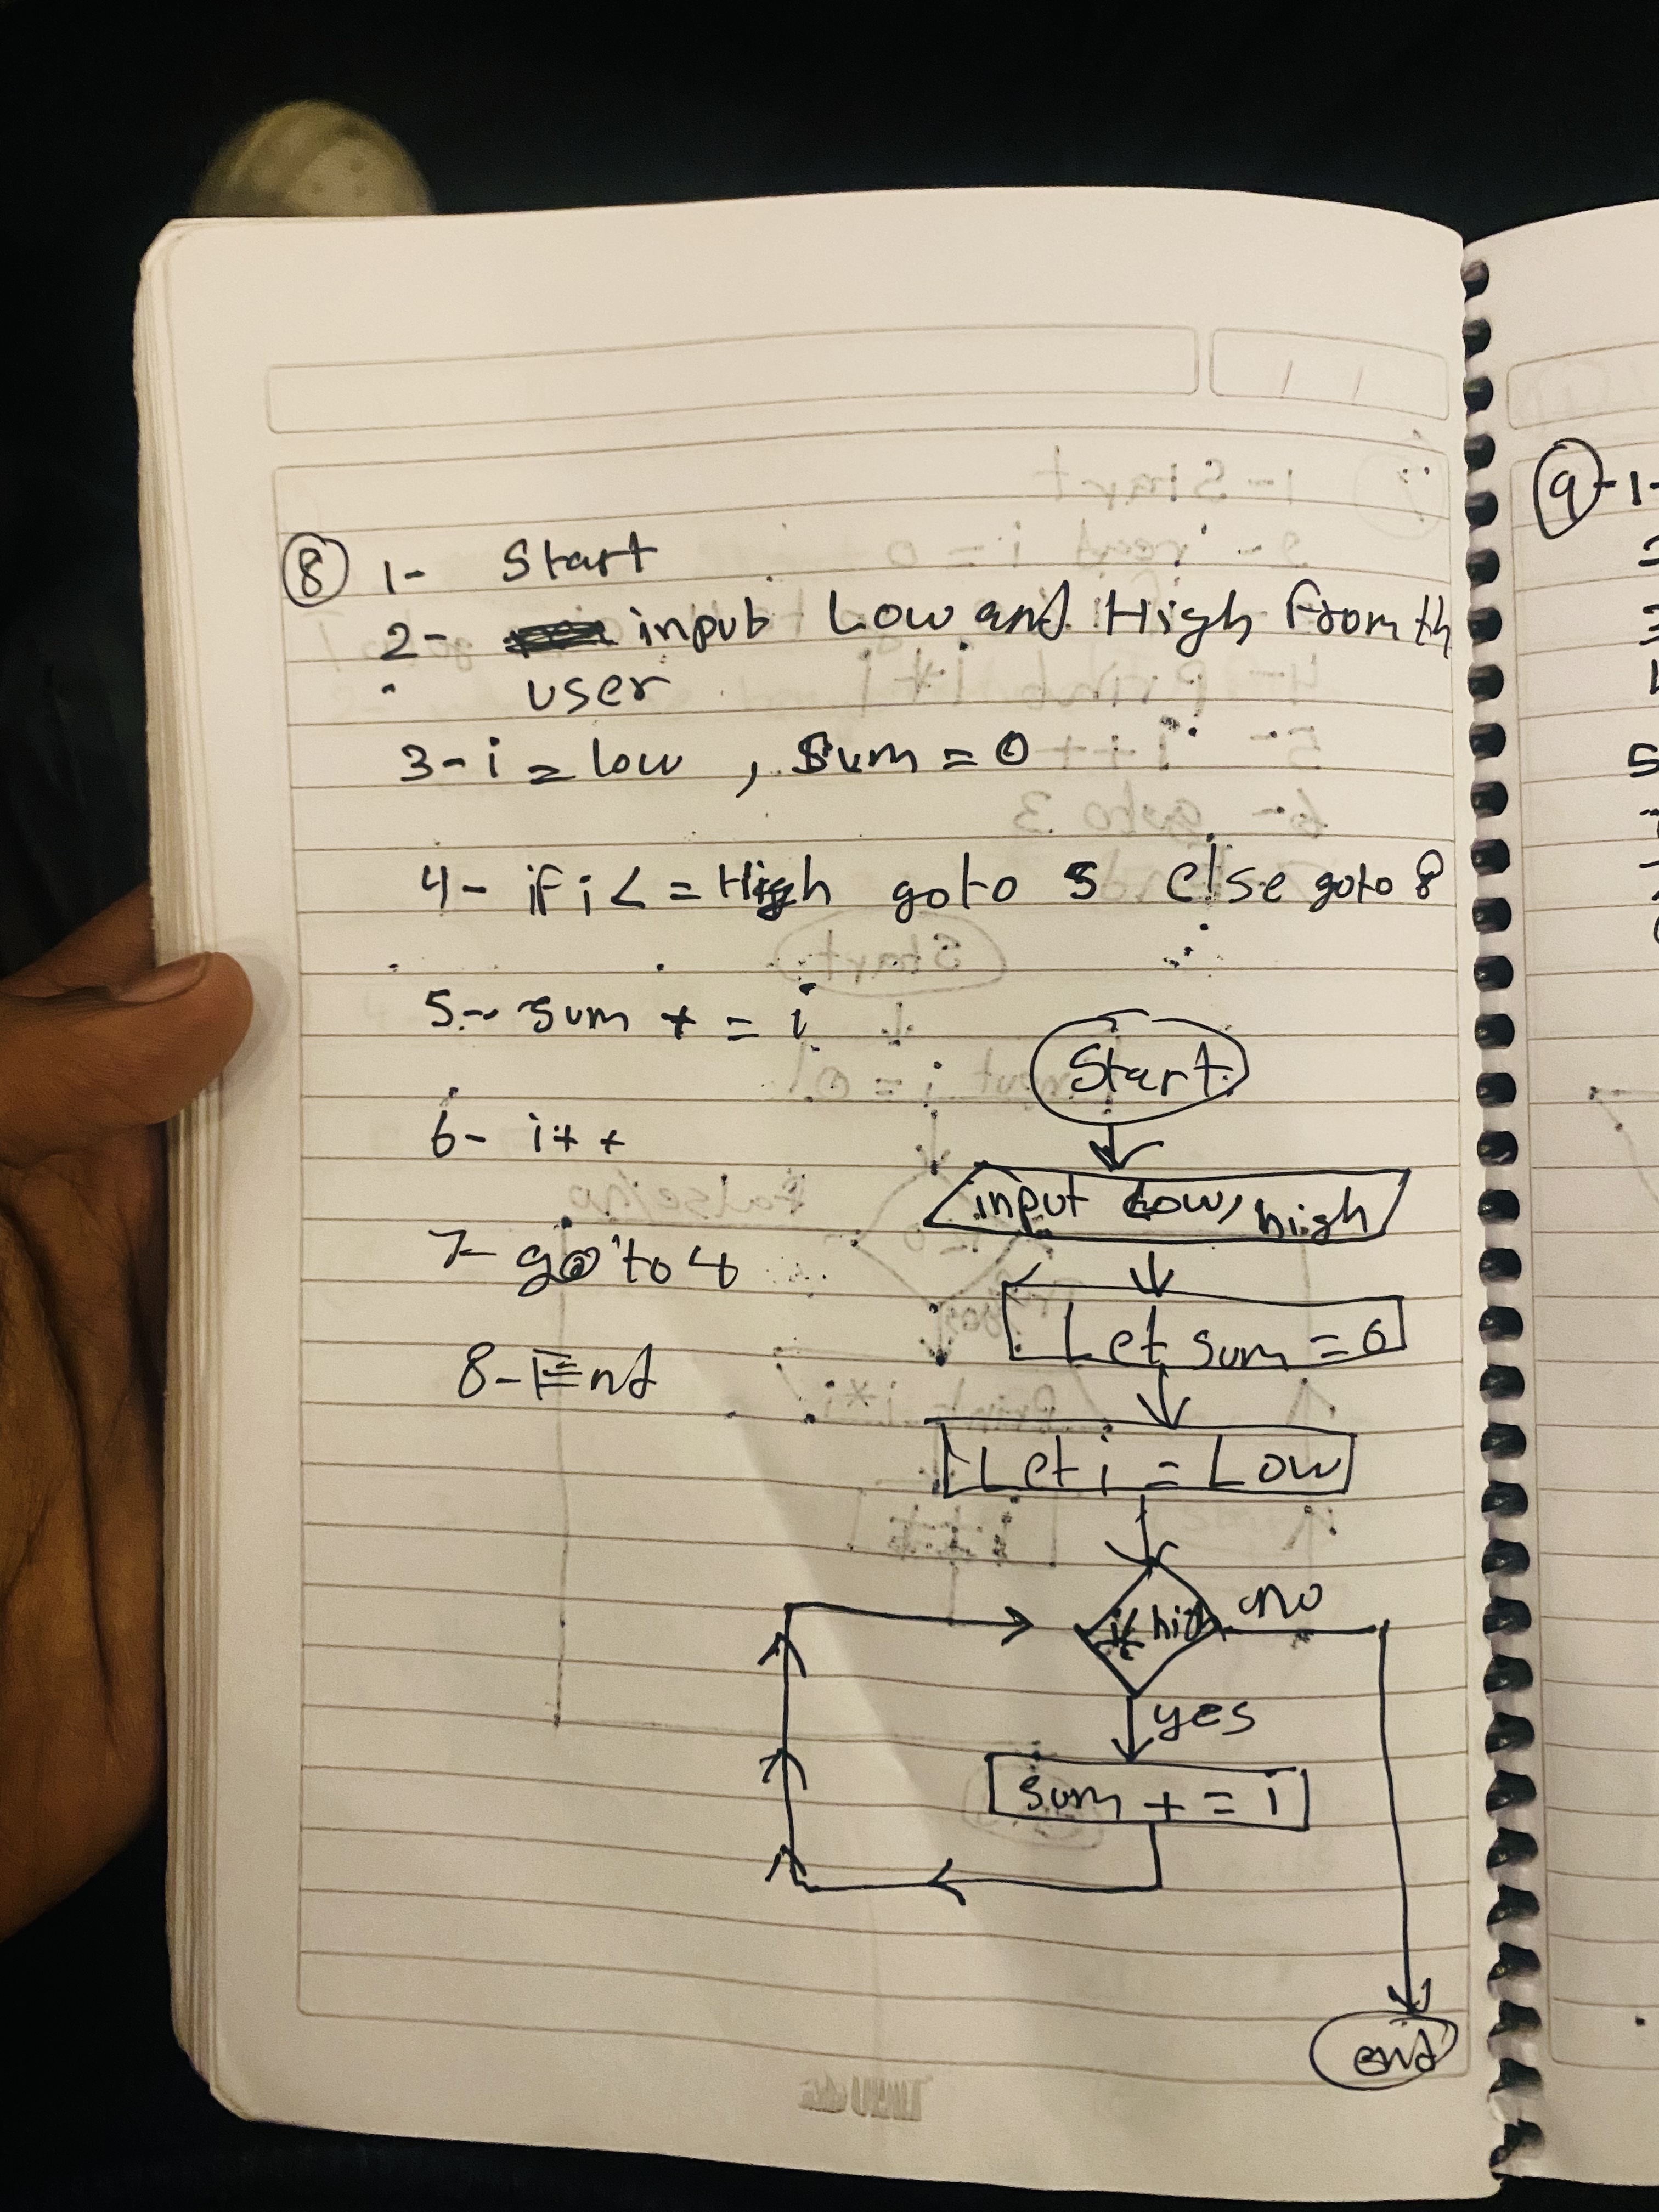 8 1- Start
2- input Low and High from th
user
3- i = low , Sum = 0
4- if i < = High goto 5 else goto 8
5- sum + = i
6- i++
7- go to 4
8- End
Start
input Low, high
Let sum = 0
Let i = Low
high no
yes
sum + = i
end
9-1-
5